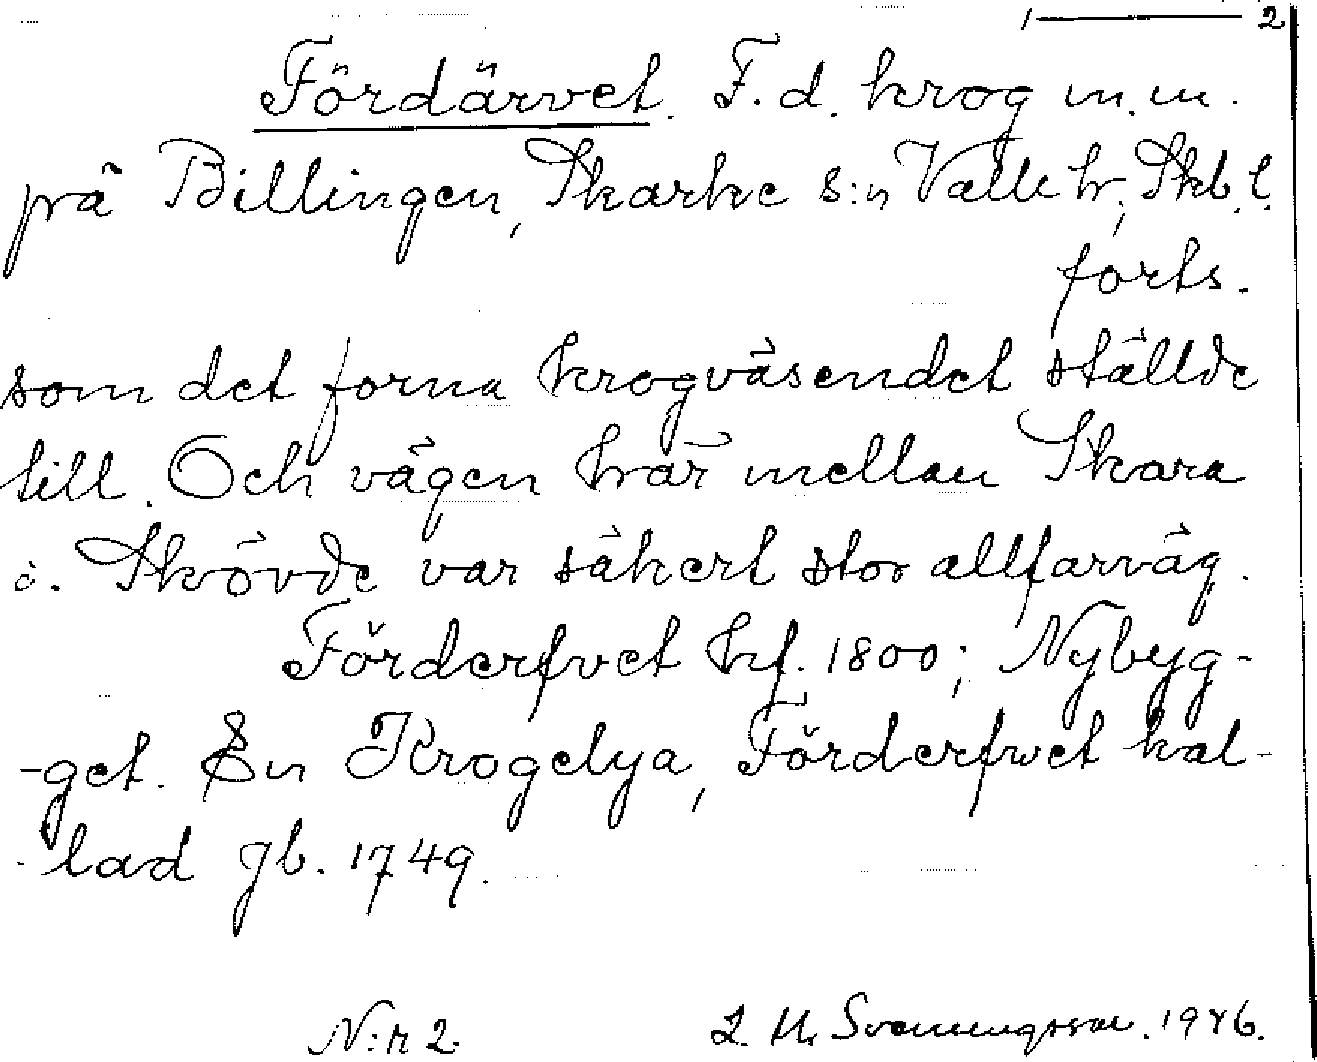 1 — 2
Fördärvet. F.d. krog m.m.
på Billingen, Skarke s:n Valle hr, Skb.l.
forts.
som det forna krogväsendet ställde
till. Och vägen här mellan Skara
o. Skövde var säkert stor allfarväg.
Förderfvet hf. 1800; Nybyg-
-get. En Krogelya, Förderfwet kal-
-lad gb. 1749.
N:r 2. L. M. Svenungsson. 1946.